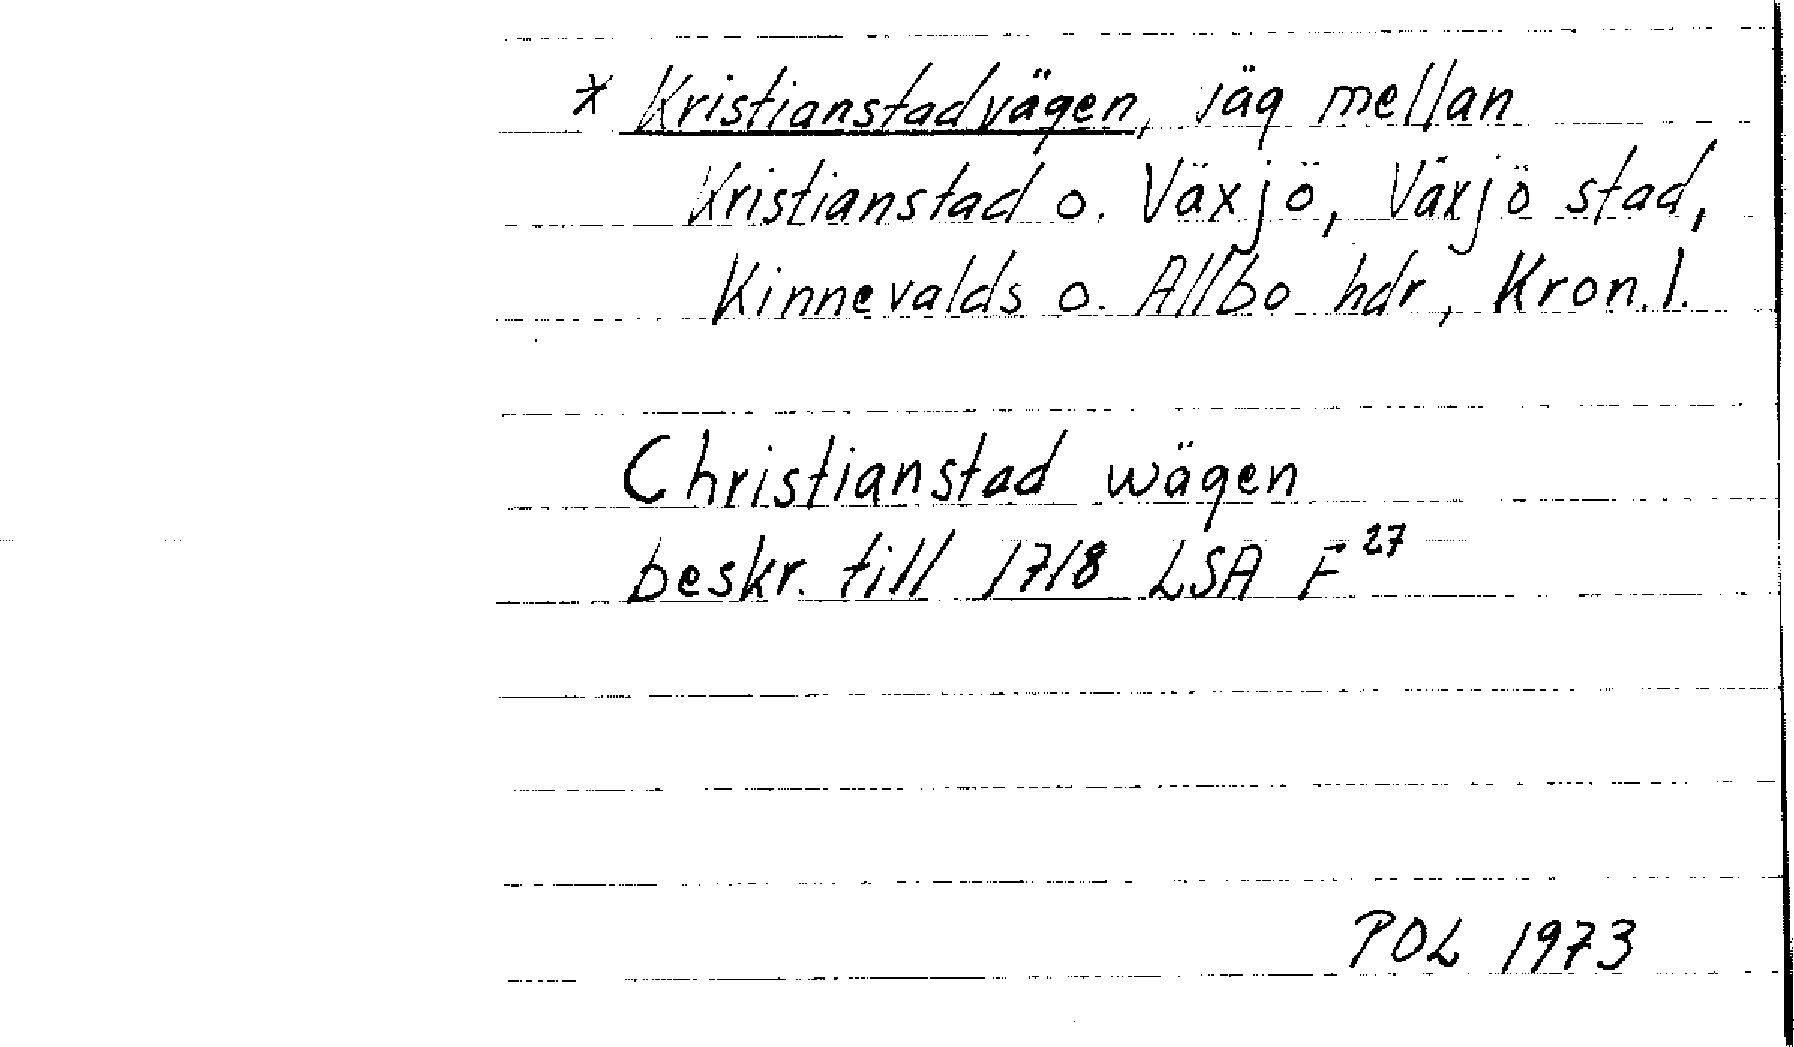 * Kristianstadvägen, väg mellan
Kristianstad o. Växjö, Växjö stad,
Kinnevalds o. Allbo hdr, Kron. l.
Christianstad wägen
beskr. till 1718 LSA F 27
POL 1973